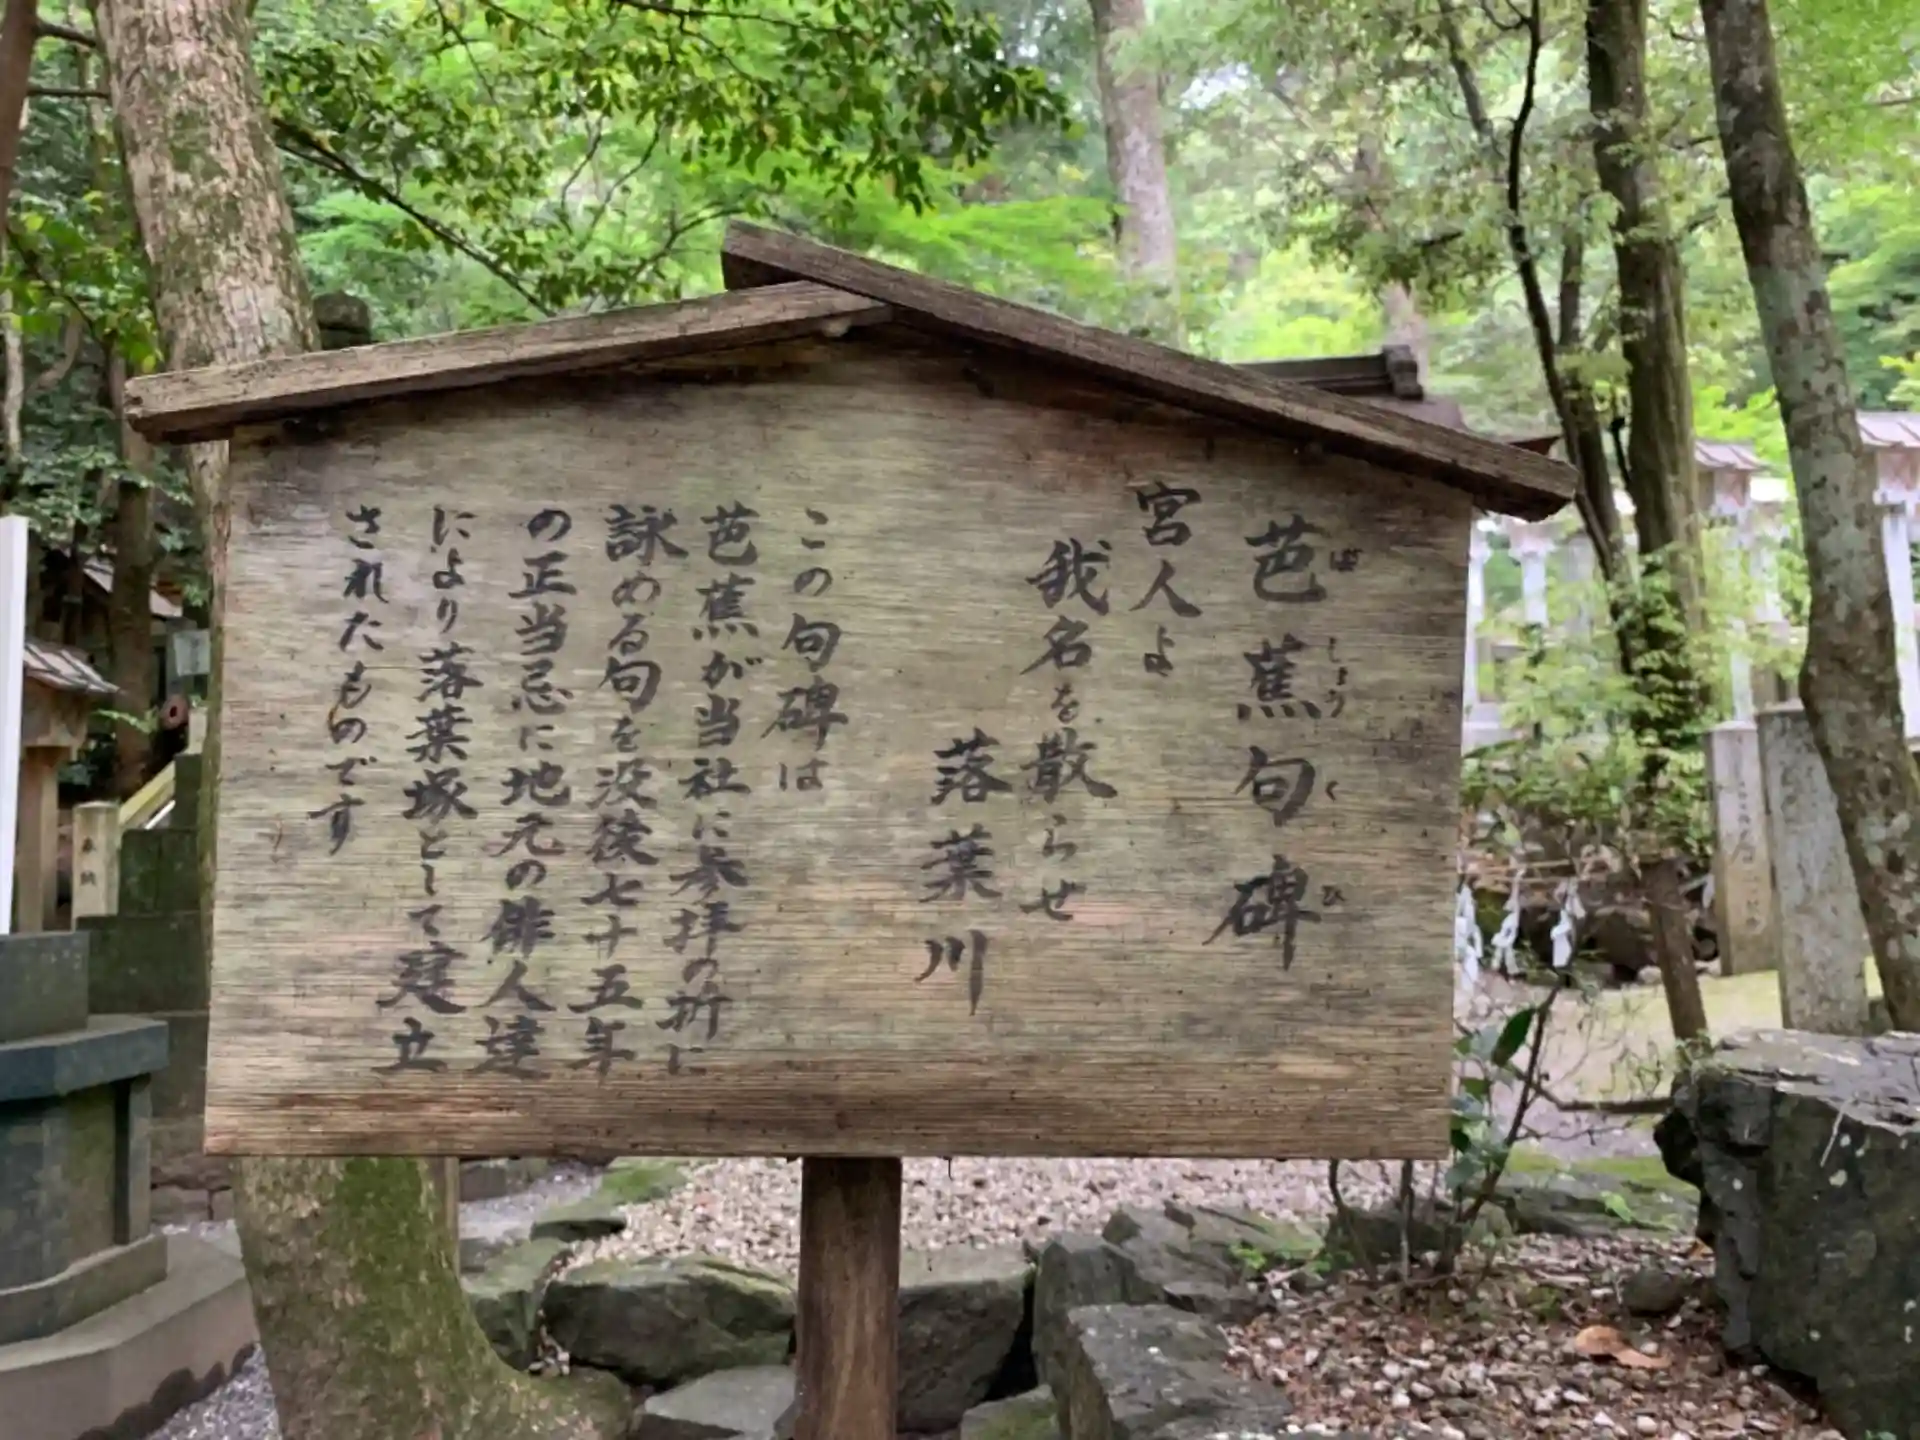 芭蕉句碑
ばしょうくひ
宮人よ
我名を散らせ
落葉川
この句碑は
芭蕉が当社に参拝の折に
詠める句を没後七十五年
の正当忌に地元の俳人達
により落葉塚として建立
されたものです
奉納